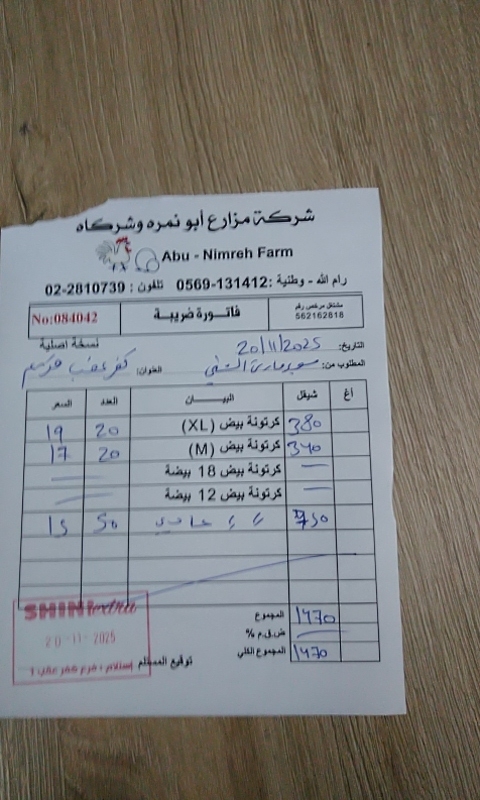 شركة مزارع أبو نمره وشركاه
Abu - Nimreh Farm
رام الله - وطنية :0569-131412 تلفون : 02-2810739
مشتغل مرخص رقم
562162818
فاتورة ضريبة
No:084042
نسخة اصلية
التاريخ: 20/11/2025
المطلوب من:
العنوان: كفر عقب
أغ شيقل البيـــان العدد السعر
380 كرتونة بيض (XL) 20 19
340 كرتونة بيض (M) 20 17
كرتونة بيض 18 بيضة
كرتونة بيض 12 بيضة
750 عادي 50 15
المجموع 1470
ض.ق.م %
المجموع الكلي 1470
توقيع المستلم
SHINI extra
20-11-2025
إستلام / فرع كفر عقب 1